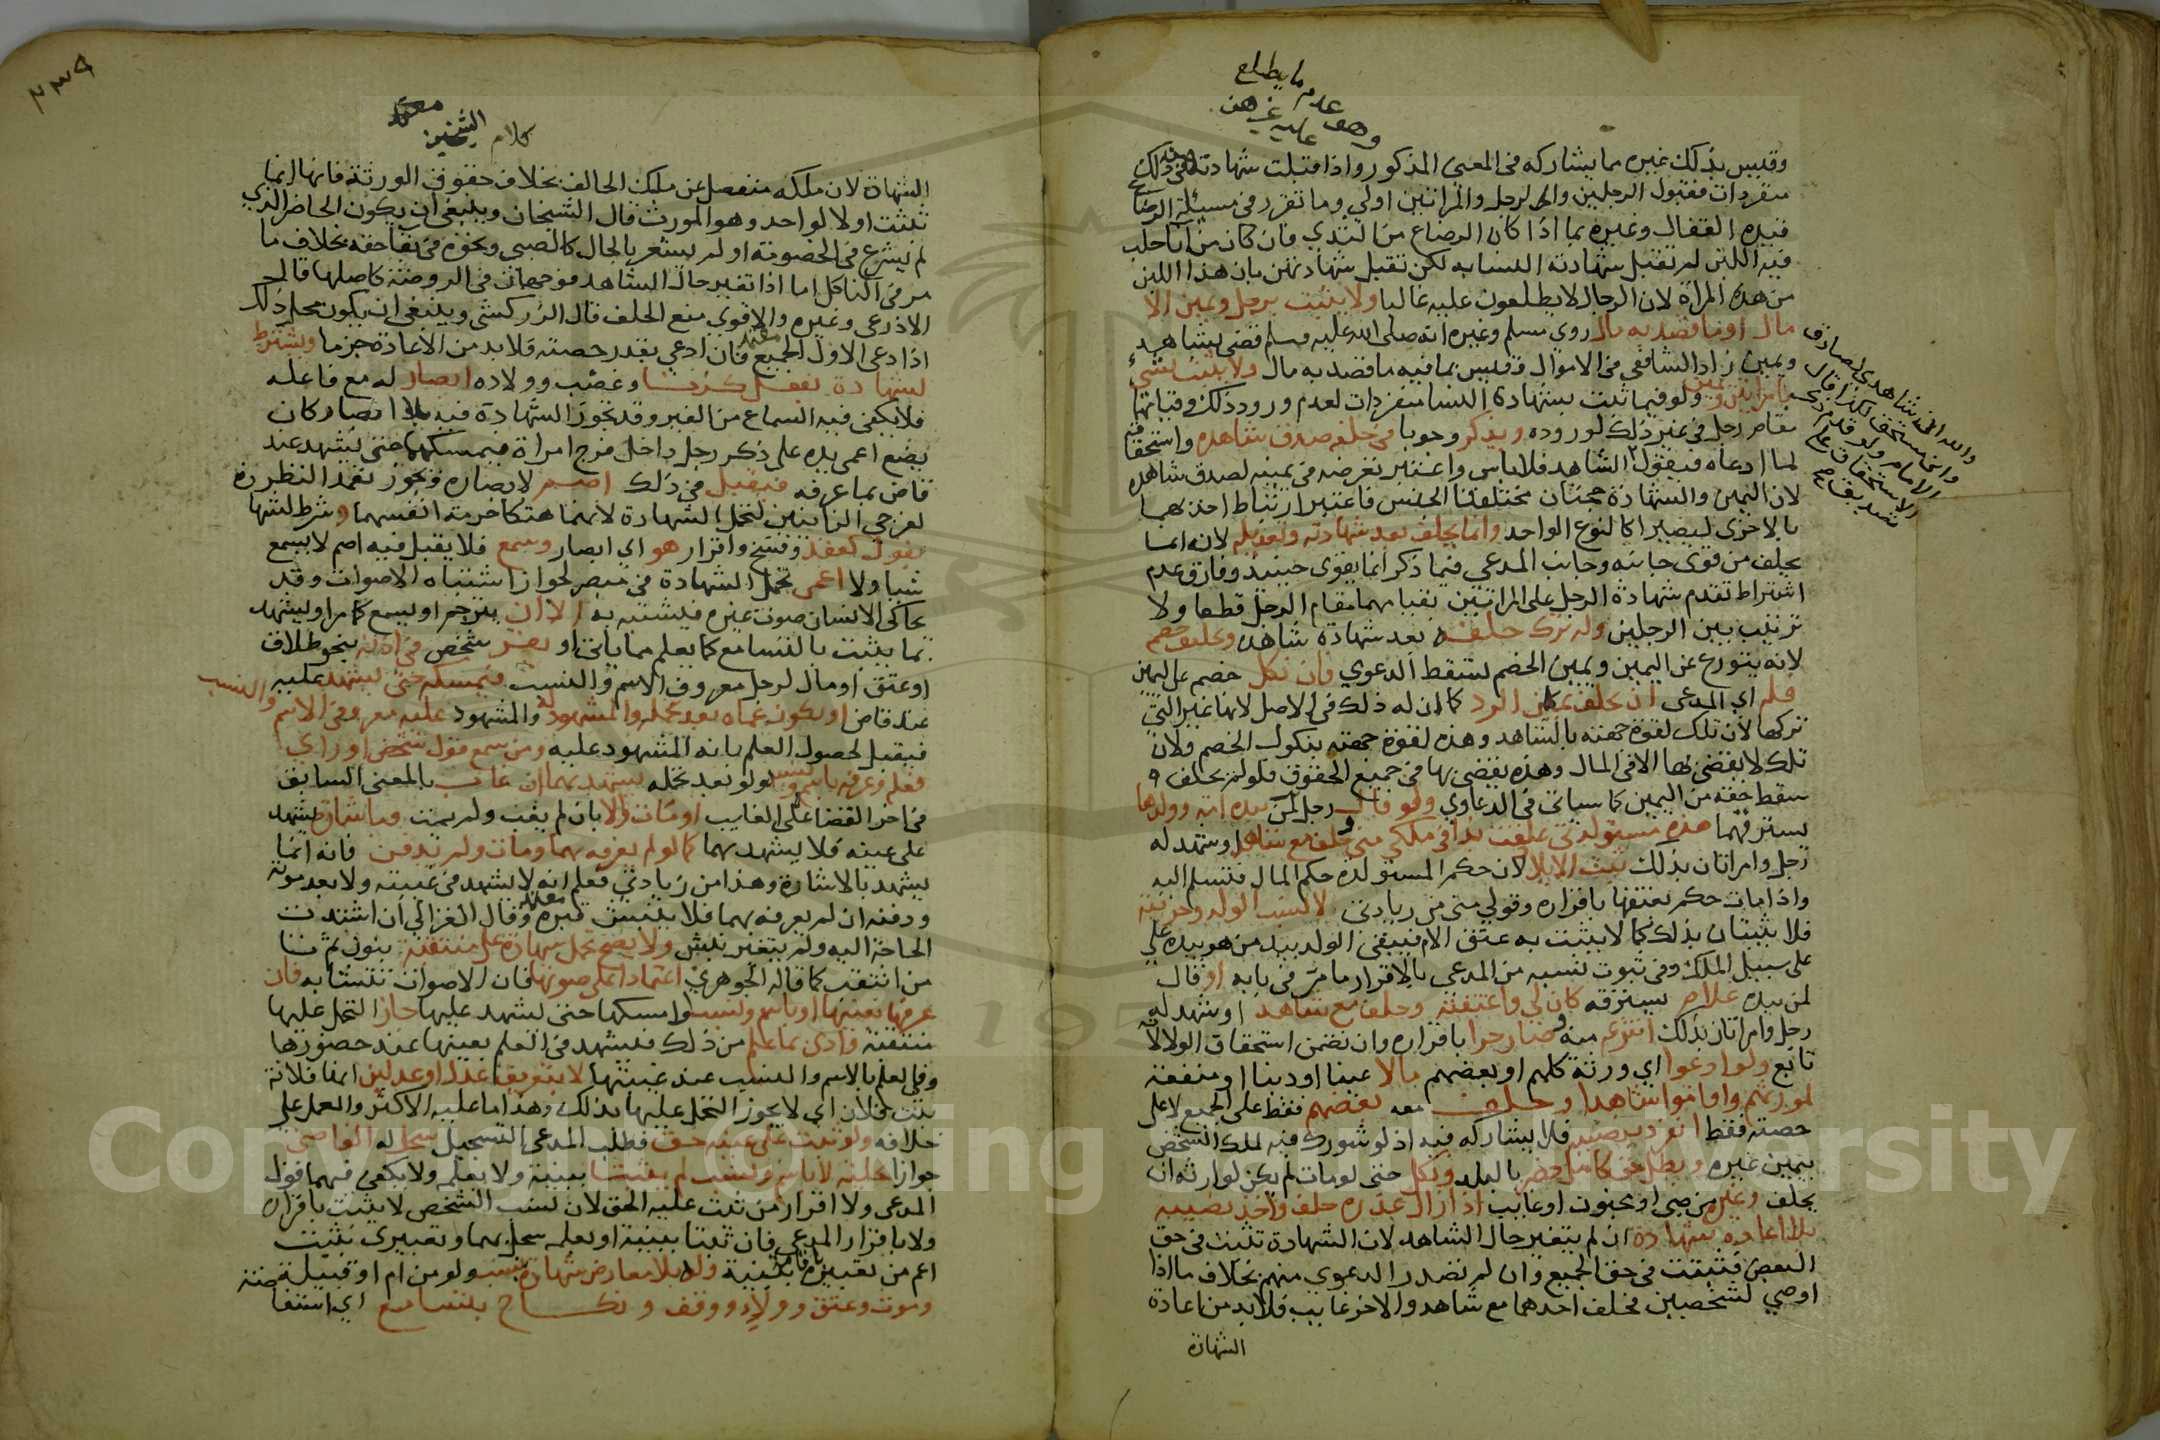 ما يطلع
وهو عدم
عليه غيرهن
وقيس بذلك غيره مما يشاركه في المعنى المذكور واذا قبلت شهادتهن في ذلك
منفردات فقبول الرجلين والرجل والمراتين اولى وما تقرر في مسئلة الرضاع
قيده القفال وغيره بما اذا كان الرضاع من الثدي فان كان من انا حلب
فيه اللبن لم تقبل شهادة النسا به لكن تقبل شهادتهن بان هذا اللبن
من هذه المراة لان الرجال لا يطلعون عليه غالبا ولا يثبت برجل ويمين الا
مال او ما قصد به مال روي مسلم وغيره انه صلى الله عليه وسلم قضى بشاهد
ويمين زاد الشافعي في الاموال وقيس بما فيه ما قصد به مال ولا يثبت شيء
بامراتين ويمين ولو فيما ثبت بشهادة النسا منفردات لعدم ورود ذلك وقيامهما
مقام رجل في غير ذلك لوروده ويذكر وجوبا في حلفه صدق شاهده واستحقاقه
لما ادعاه فيقول الشاهد فلا باس واعتبر تعرضه في يمينه لصدق شاهده
لان اليمين والشهادة حجتان مختلفتا الجنس فاعتبر ارتباط احدهما
بالاخرى ليصيرا كالنوع الواحد وانما يحلف بعد شهادته وتعديله لانه انما
يحلف من قوى جانبه وجانب المدعي فيما ذكر انما يقوى حينيذ وفارق عدم
اشتراط تقدم شهادة الرجل على المراتين بقيامهما مقام الرجل قطعا ولا
ترتيب بين الرجلين وله ترك حلفه بعد شهادة شاهده وتحليف خصمه
لانه يتورع عن اليمين ويمين الخصم تسقط الدعوى فان نكل خصمه عن اليمين
فله اي المدعي ان يحلف يمين الرد كما ان له ذلك في الاصل لانها غير التي
تركها لان تلك لقوة جهته بالشاهد وهذه لقوة جهته بنكول الخصم ولان
تلك لا يقضى بها الا في المال وهذه يقضى بها في جميع الحقوق فلو لم يحلف
سقط حقه من اليمين كما سياتي في الدعاوي ولو قال رجل لمن بيده امة وولدها
يسترقهما هذه مستولدتي علقت بذا في ملكي مني وحلف مع شاهد او شهد له
رجل وامراتان بذلك ثبت الايلاد لان حكم المستولدة حكم المال فتسلم اليه
واذا مات حكم بعتقها باقراره وقولي مني من زيادتي لا نسب الولد وحريته
فلا يثبتان بذلك كما لا يثبت به عتق الام فيبقى الولد بيد من هو بيده على
على سبيل الملك وفي ثبوت نسبه من المدعي بالاقرار ما مر في بابه او قال
لمن بيده غلام يسترقه كان لي واعتقته وحلف مع شاهد او شهد له
رجل وامراتان بذلك انتزعه منه وصار حرا باقراره وان تضمن استحقاق الولا لانه
تابع ولو ادعوا اي ورثة كلهم او بعضهم مالا عينا او دينا او منفعة
لمورثهم واقاموا شاهدا وحلف معه بعضهم فقط على الجميع لا على
حصته فقط انفرد بنصيبه فلا يشارك فيه اذ لو شورك فيه لملك الشخص
بيمين غيره وبطل حق كامل حضر بالبلد ونكل حتى لو مات لم يكن لوارثه ان
يحلف وغيره من صبي او مجنون او غايب اذا زال عذره حلف واخذ نصيبه
بلا اعادة شهادة ان لم يتغير حال الشاهد لان الشهادة تثبت في حق
البعض فثبتت في حق الجميع وان لم تصدر الدعوى منهم بخلاف ما اذا
اوصى لشخصين فحلف احدهما مع شاهد والاخر غايب فلا بد من اعادة
الشهادة
والله ان شاهدي لصادق
واني مستحق لكذا قال
الامام ولو قدم ذكر
الاستحقاق على
تصديق شاهده
٢٣٩
معتمد
كلام الشيخين
الشهادة لان ملكه منفصل عن ملك الحالف بخلاف حقوق الورثة فانها انما
تثبت اولا لواحد وهو المورث قال الشيخان وينبغي ان يكون الحاضر الذي
لم يشرع في الخصومة او لم يشعر بالحال كالصبي ونحوه في بقا حقه بخلاف ما
مر في الناكل اما اذا تغير حال الشاهد فوجهان في الروضة كاصلها قال
الاذرعي وغيره والاقوى منع الحلف قال الزركشي وينبغي ان يكون محل ذلك
اذا ادعى الاول الجميع فان ادعى بقدر حصته فلا بد من الاعادة جزما وشرط
لشهادة بفعل كزنا وغصب وولادة ابصار له مع فاعله
فلا يكفي فيه السماع من الغير وقد تجوز الشهادة فيه بلا ابصار كان
يضع اعمى يده على ذكر رجل داخل فرج امراة فيمسكهما حتى يشهد عند
قاض بما عرفه فيقبل في ذلك اصم لابصاره ويجوز تعمد النظر
لفرجي الزانيين لتحمل الشهادة لانهما هتكا حرمة انفسهما وشرط لشهادة
بقول كعقد وفسخ واقرار هو اي ابصار وسمع فلا يقبل فيه اصم لا يسمع
شيا ولا اعمى تحمل الشهادة في مبصر لجواز اشتباه الاصوات وقد
يحاكي الانسان صوت غيره فيشتبه به الا ان يترجم او يسمع كما مر او يشهد
بما يثبت بالتسامع كما يعلم مما ياتي او يقر شخص في اذنه بنحو طلاق
او عتق او مال لرجل معروف الاسم والنسب فيمسكه حتى يشهد عليه
عند قاض او يكون عماه بعد تحمله والمشهود له والمشهود عليه معروفي الاسم والنسب
فيقبل لحصول العلم بانه المشهود عليه ومن سمع قول شخص او راى
فعله وعرفه باسم ونسب ولو بعد تحمله شهد بهما ان غاب بالمعنى السابق
في اخر القضا على الغايب او مات والا بان لم يغب ولم يمت فباشارة يشهد
على عينه فلا يشهد بهما كما لو لم يعرفه بهما ومات ولم يدفن فانه انما
يشهد بالاشارة وهذا من زيادتي فعلم انه لا يشهد في غيبته ولا بعد موته
ودفنه ان لم يعرفه بهما فلا ينبش قبره وقال الغزالي ان اشتدت
معتمد
الحاجة اليه ولم يتغير نبش ولا يصح تحمل شهادة على منتقبة بنون ثم تا
من انتقبت كما قاله الجوهري اعتمادا على صوتها فان الاصوات تتشابه فان
عرفها بعينها او باسم ونسب وامسكها حتى شهد عليها جاز التحمل عليها
منتقبة وادى بما علم من ذلك فيشهد في العلم بعينها عند حضورها
وفي العلم بالاسم والنسب عند غيبتها لا بتعريف عدل او عدلين انها فلانة
بنت فلان اي لا يجوز التحمل عليها بذلك وهذا ما عليه الاكثر والعمل على
خلافه ولو ثبت على عينه حق فطلب المدعي التسجيل سجل له القاضي
جوازا بحلية لا باسم ونسب لم يثبتا ببينة ولا بعلمه ولا يكفي فيهما قول
المدعي ولا اقرار من ثبت عليه الحق لان نسب الشخص لا يثبت باقراره
ولا باقرار المدعي فان ثبتا ببينة او بعلمه سجل بهما وتعبيري بثبت
اعم من تعبيره بقامت بينة وله بلا معارض شهادة بنسب ولو من ام او قبيلة
وموت وعتق وولاء ووقف ونكاح بتسامع اي استفا